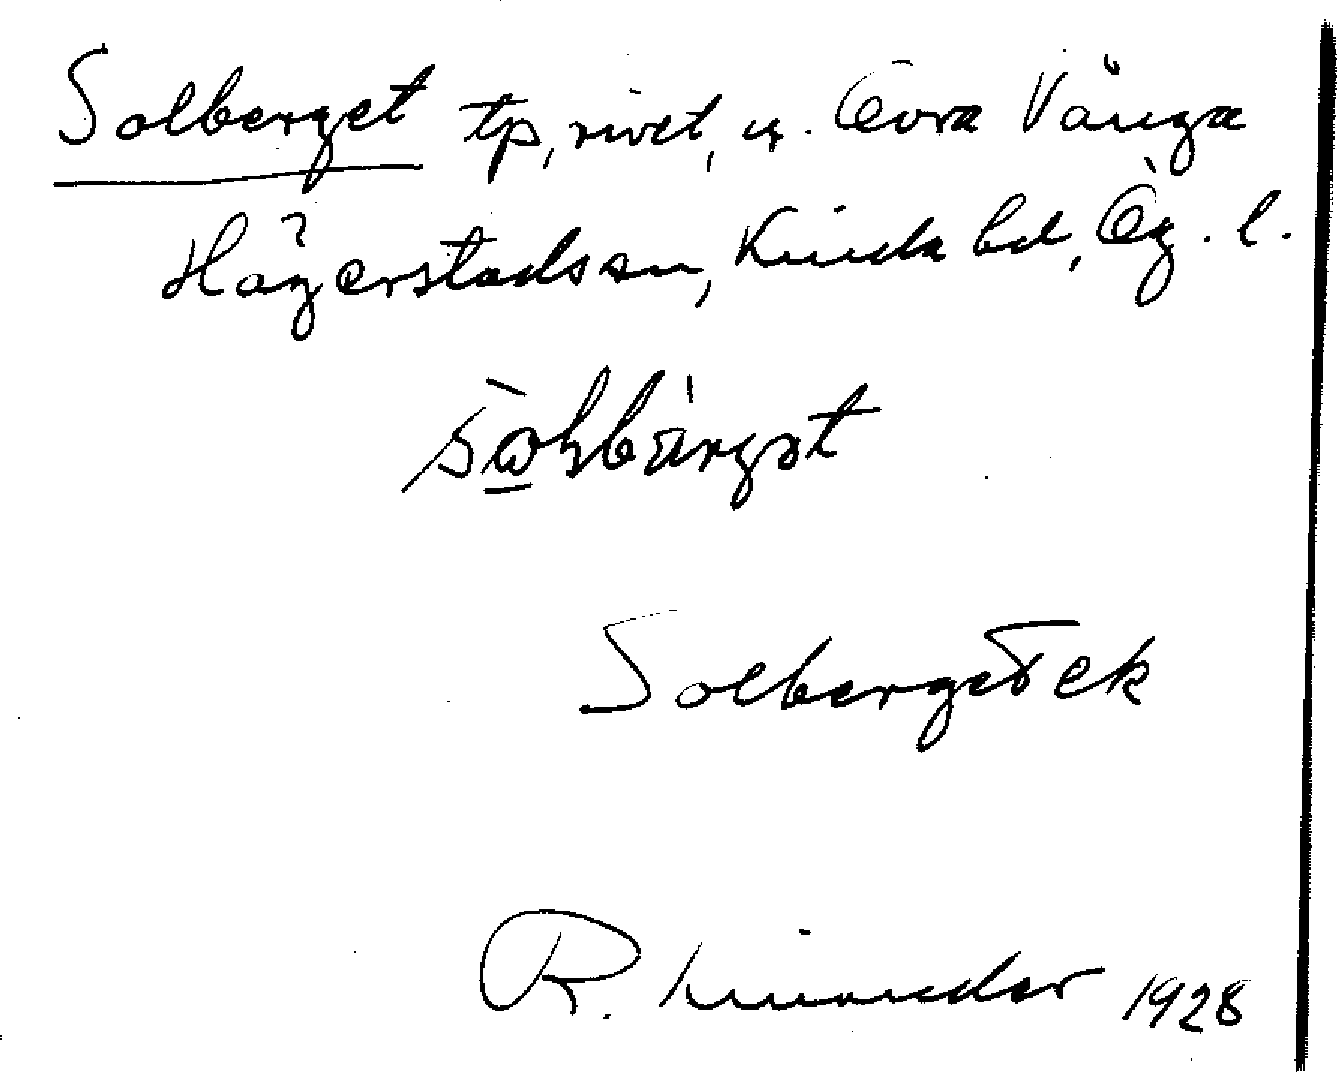 Solberget tp, rivet, u. Övra Vänga
Hägerstads sn, Kinda hd, Ög. l.
Solberget ek
R. Linander 1928